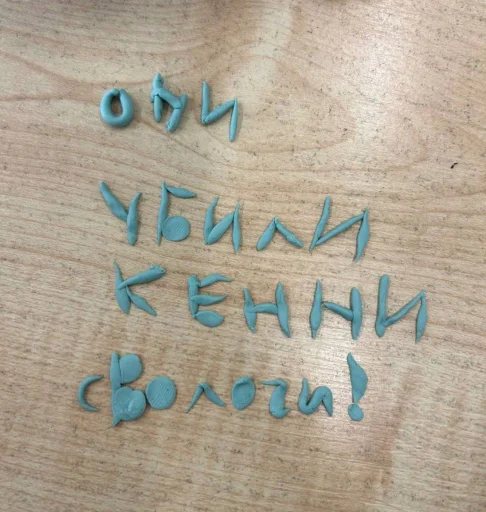 ОНИ
УБИЛИ
КЕННИ
сВолочи!